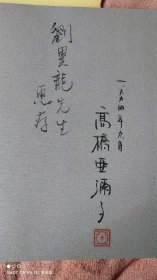 劉異龍先生
惠存
一九九四年九月
高橋亜彌子